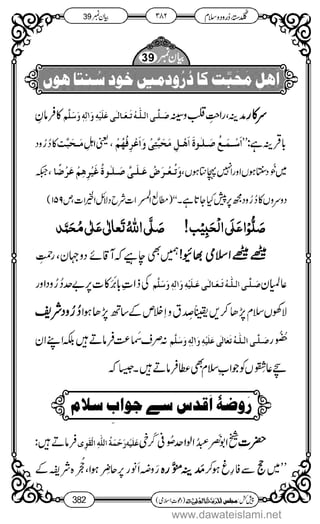 گلدستۂ درود و سلام ۳۸۲ بیان نمبر 39
بیان نمبر 39
اہلِ مَحَبَّت کا دُرُود میں خود سُنتا ہوں
سرکارِ مدینہ، راحتِ قلب و سینہ صَلَّی اللہُ تَعَالٰی عَلَیْہِ وَاٰلِہٖ وَسَلَّم کا فرمانِ
باقرینہ ہے: ”اَسْمَعُ صَلٰوۃَ اَھْلِ مَحَبَّتِیْ وَاَعْرِفُھُمْ، یعنی اہلِ مَحَبَّت کا دُرُود
میں خود سنتا ہوں اور انہیں پہچانتا ہوں، وَتُعْرَضُ عَلَیَّ صَلٰوۃُ غَیْرِھِمْ عَرْضًا، جبکہ
دوسروں کا دُرُود مجھ پر پیش کیا جاتا ہے۔“ (مطالع المسرات شرح دلائل الخیرات، ص ۱۵۹)
صَلُّوْا عَلَی الْحَبِیْب! صَلَّی اللہُ تَعَالٰی عَلٰی مُحَمَّد
میٹھے میٹھے اسلامی بھائیو! ہمیں بھی چاہیے کہ آقائے دو جہاں، رحمتِ
عالمیان صَلَّی اللہُ تَعَالٰی عَلَیْہِ وَاٰلِہٖ وَسَلَّم کی ذاتِ بابرکات پر بے حد دُرُود اور
لاکھوں سلام پڑھا کریں یقیناً صِدق و اِخلاص کے ساتھ پڑھا ہوا دُرُود شریف
حُضُور صَلَّی اللہُ تَعَالٰی عَلَیْہِ وَاٰلِہٖ وَسَلَّم نہ صرف سَماعت فرماتے ہیں بلکہ اپنے اُن
سچے عاشقوں کو جوابِ سلام بھی عطا فرماتے ہیں۔ جیسا کہ
رَوضۂ اَقدَس سے جوابِ سلام
حضرتِ شیخ ابو نصر عبدُ الواحد صُوفی کَرخی عَلَیْہِ رَحْمَۃُ اللہِ الْقَوِی فرماتے ہیں:
”میں حج سے فارغ ہو کر مدینۂ مُنوّرہ روضۂ انور پر حاضِر ہوا، حُجرۂ شریفہ کے
382
www.dawateislami.net